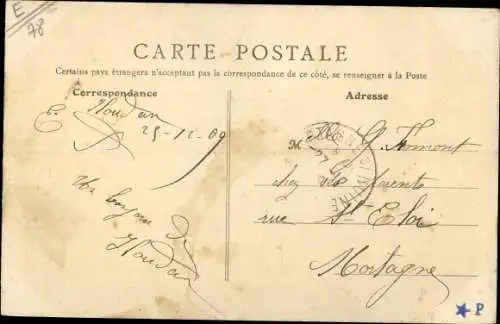 E
78
CARTE POSTALE
Certains pays étrangers n'acceptant pas la correspondance de ce côté, se renseigner à la Poste
Correspondance
Houdan
25-12-09
Un bonjour
d'
Houdan
Adresse
M Mlle G.
chez ses parents
rue St Eloi
Mortagne
P